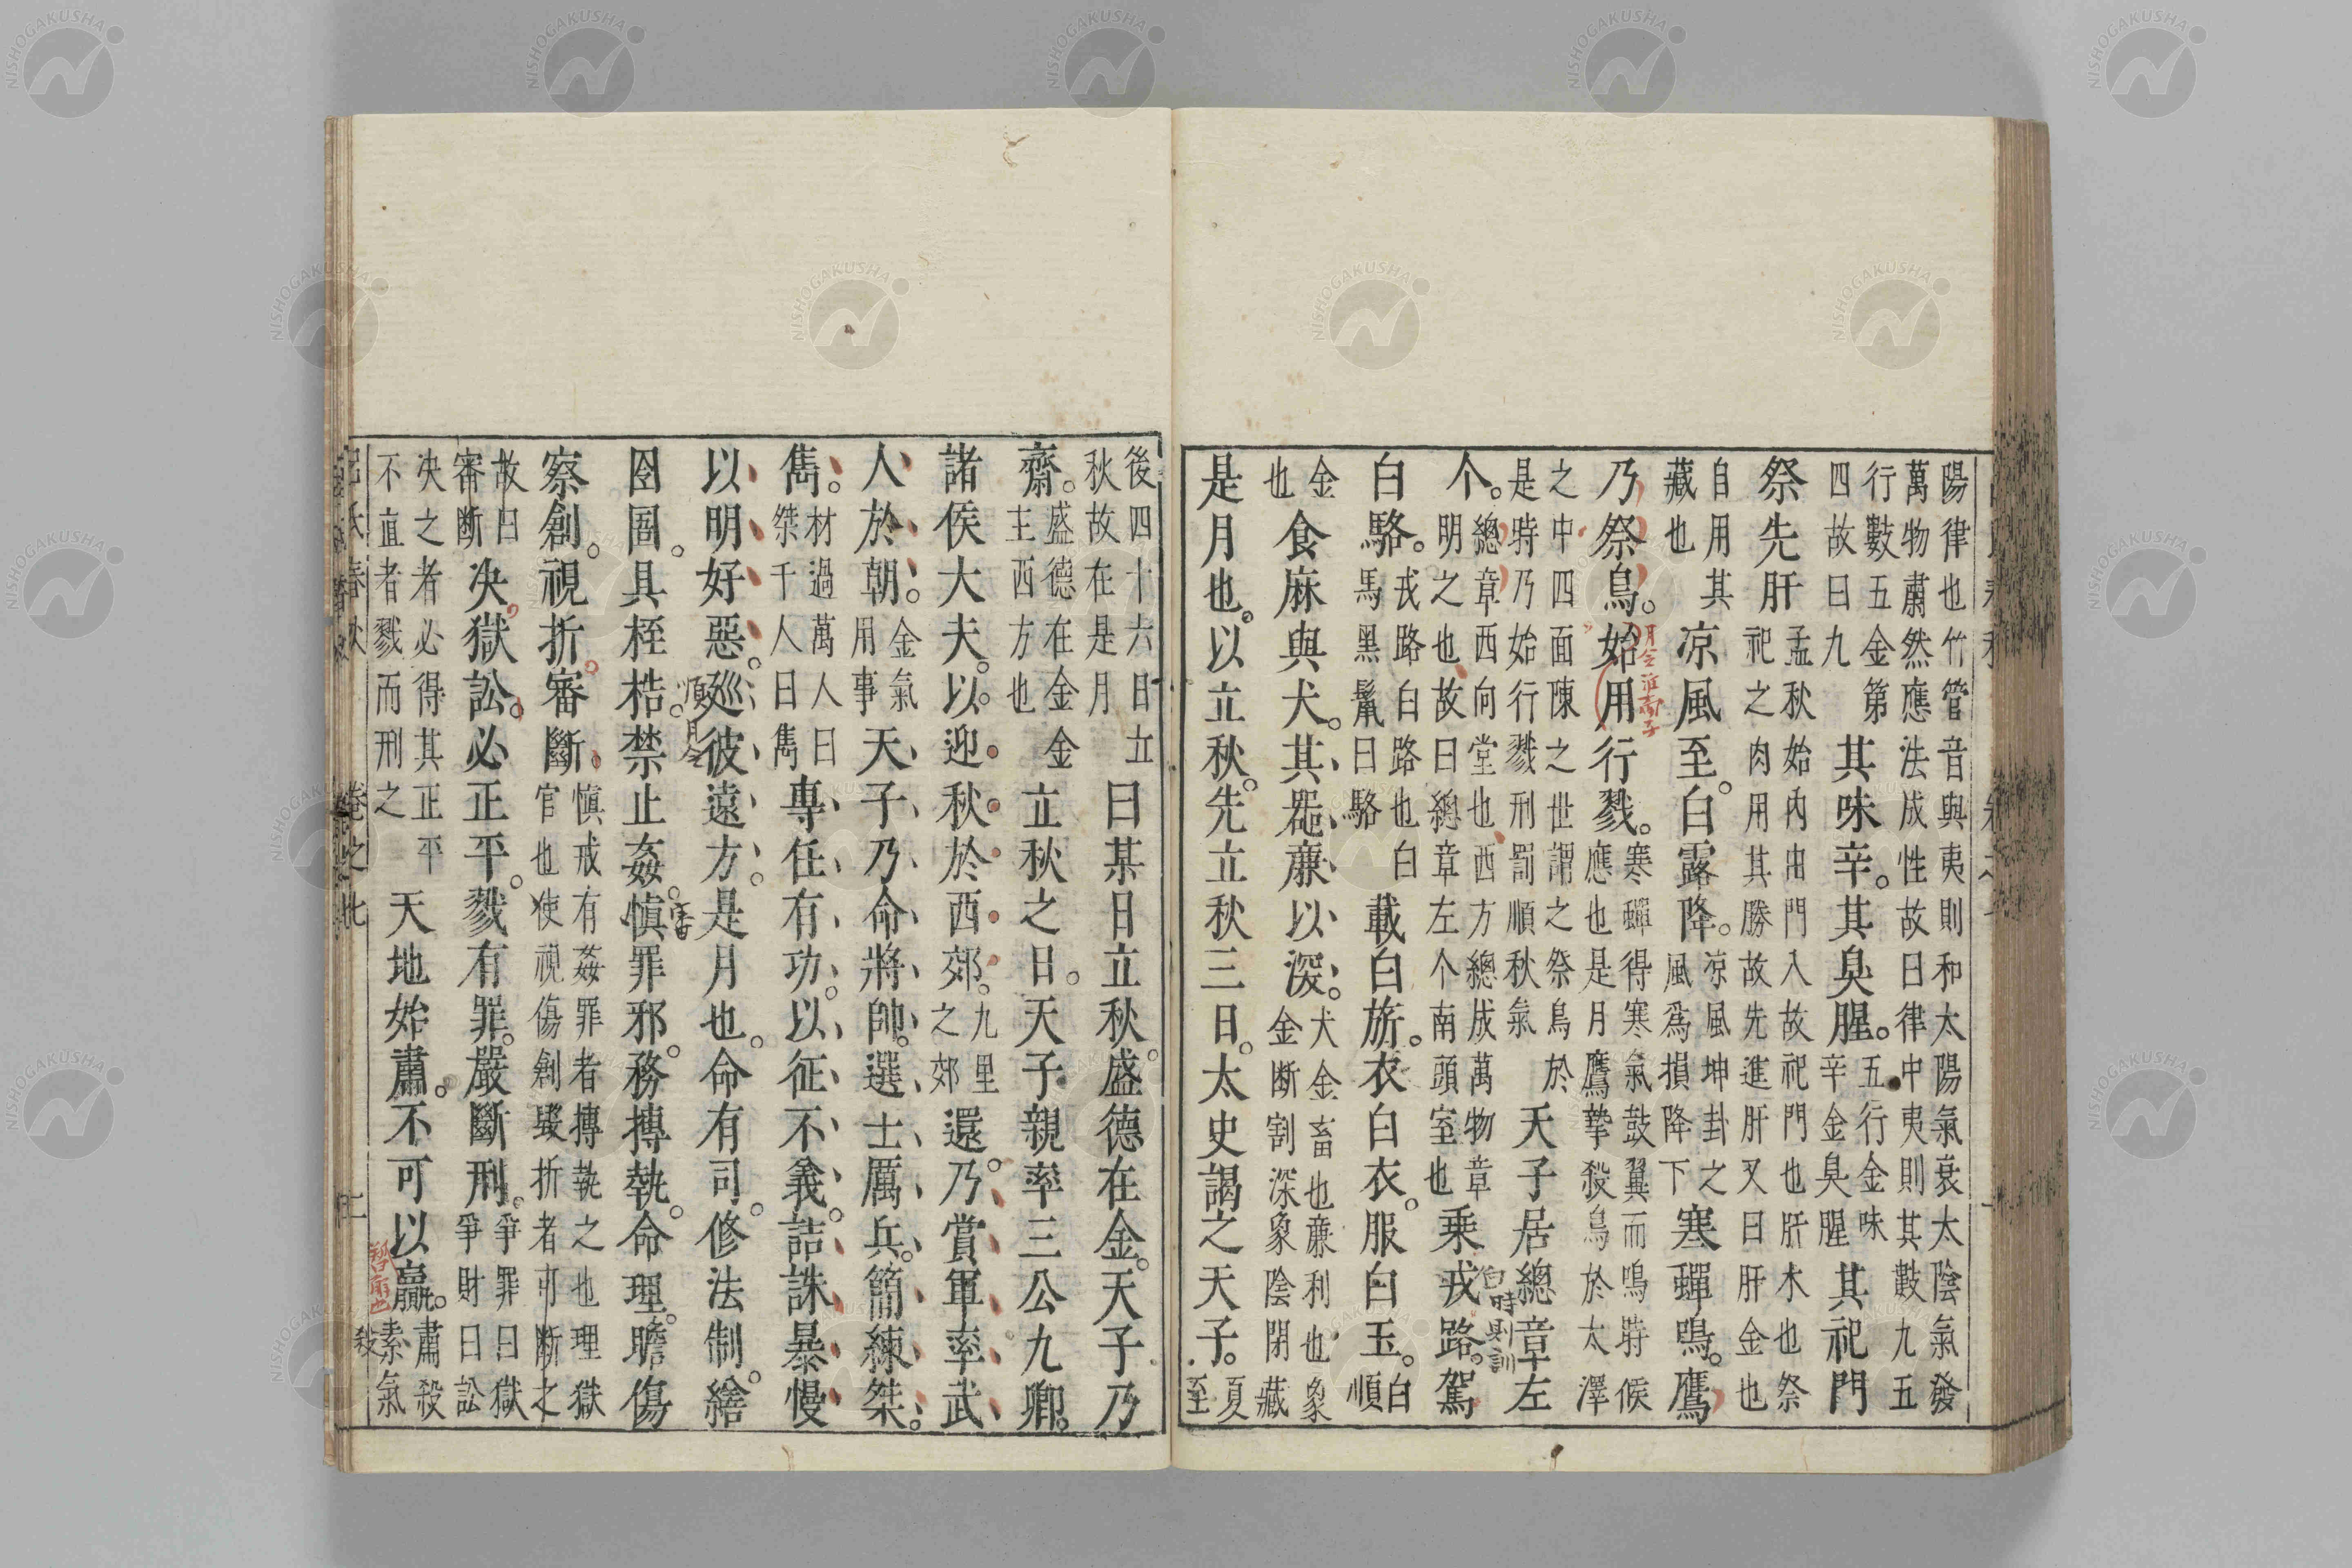 陽律也竹管音與夷則和太陽氣衰太陰氣發
萬物肅然應法成性故曰律中夷則其數九五
行數五金第
四故曰九
其味辛。其臭腥。
五行金味
辛金臭腥
其祀門
祭先肝
孟秋始內由門入故祀門也肝木也祭
祀之肉用其勝故先進肝又曰肝金也
自用其
藏也
凉風至。白露降。
凉風坤卦之
風爲損降下
寒蟬鳴。鷹
乃祭鳥。始用行戮。
寒蟬得寒氣鼓翼而鳴時候
應也是月鷹摯殺鳥於太澤
之中四面陳之世謂之祭鳥於
是時乃始行戮刑罰順秋氣
天子居總章左
个。
總章西向堂也西方總成萬物章
明之也故曰總章左个南頭室也
乘戎路。駕
白駱。
戎路白路也白
馬黑鬣曰駱
載白旂。衣白衣。服白玉。
白
順
金
也
食麻與犬。其噐廉以深。
犬金畜也廉利也象
金断割深象陰閉藏
是月也。以立秋。先立秋三日。太史謁之天子。
夏
至
後四十六日立
秋故在是月
曰某日立秋。盛德在金。天子乃
齋。
盛德在金金
主西方也
立秋之日。天子親率三公九卿。
諸侯大夫。以迎秋於西郊。
九里
之郊
還。乃賞軍率武
人於朝。
金氣
用事
天子乃命將帥。選士厲兵。簡練桀
雋。
材過萬人曰
桀千人曰雋
專任有功。以征不義。詰誅暴慢
以明好惡。廵彼遠方。是月也。命有司。修法制。繕
囹圄。具桎梏。禁止姦。慎罪邪。務搏執。命理。瞻傷
察創。視折。審斷
慎戒有姦罪者搏執之也理獄
官也使視傷創毀折者可断之
故曰
審断
决獄訟。必正平。戮有罪。嚴斷刑。
爭罪曰獄
爭財曰訟
决之者必得其正平
不直者戮而刑之
天地始肅。不可以贏。
肅殺
素氣
呂氏春秋
卷之七
二
月令淮南子
白時則訓
順月令
NISHOGAKUSHA